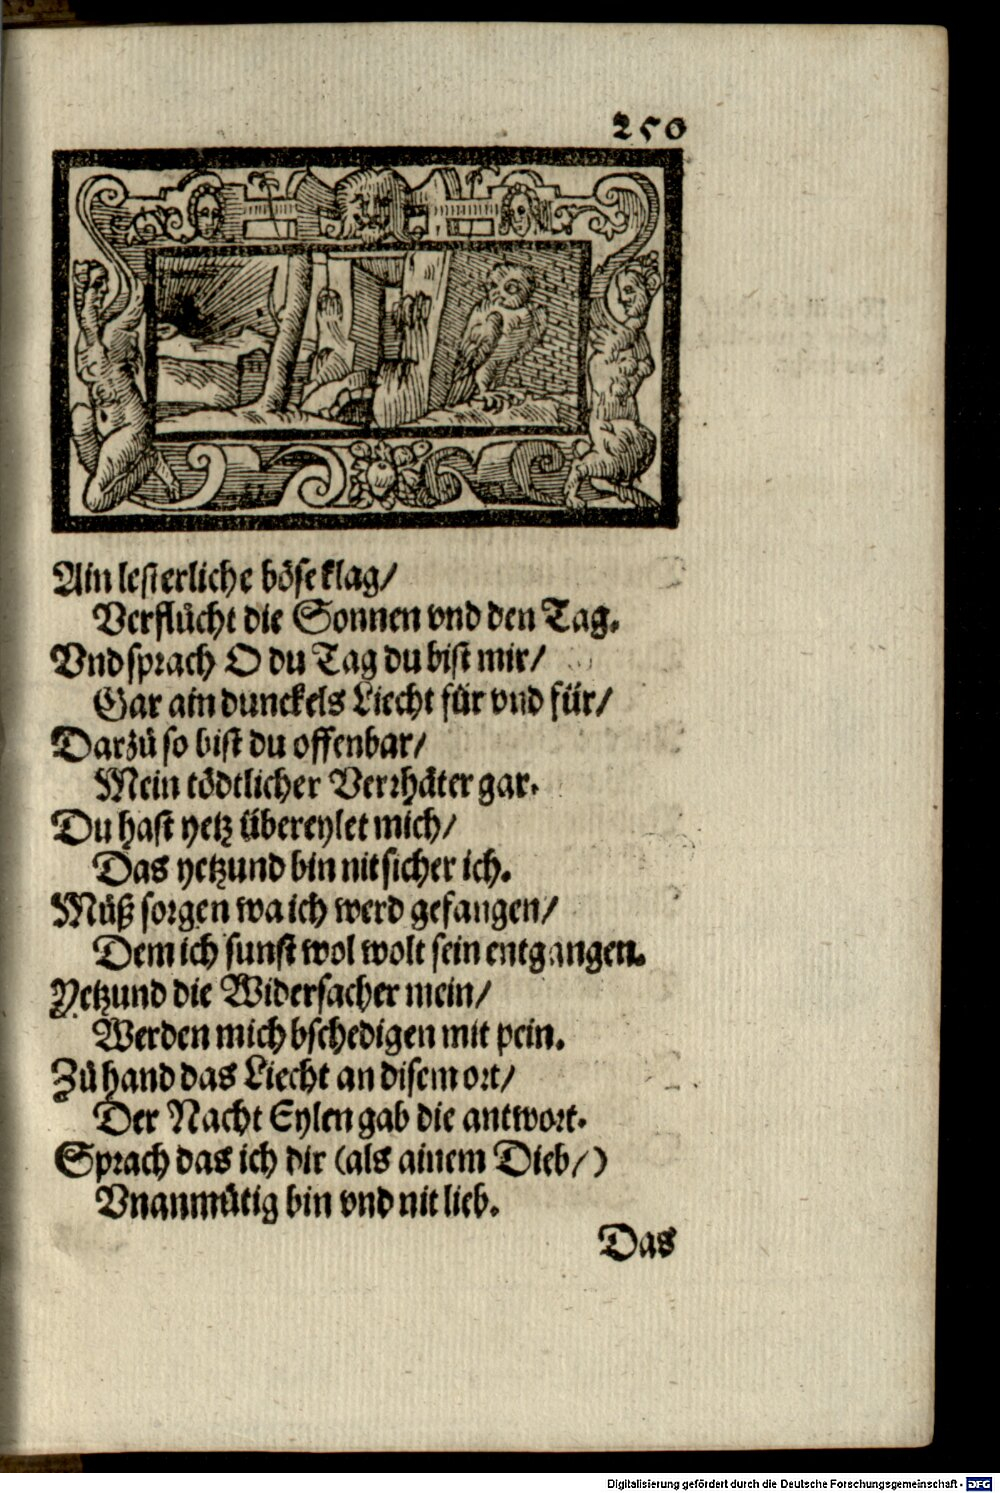 250
Ain lesterliche böse klag/
Verflůcht die Sonnen vnd den Tag.
Vnd sprach O du Tag du bist mir/
Gar ain dunckels Liecht für vnd für/
Darzů so bist du offenbar/
Mein tödtlicher Verrhäter gar.
Du hast yetz übereylet mich/
Das yetzund bin nit sicher ich.
Můß sorgen wa ich werd gefangen/
Dem ich sunst wol wolt sein entgangen.
Yetzund die Widersacher mein/
Werden mich bschedigen mit pein.
Zů hand das Liecht an disem ort/
Der Nacht Eylen gab die antwort.
Sprach das ich dir (als ainem Dieb/)
Vnanmůtig bin vnd nit lieb.
Das
Digitalisierung gefördert durch die Deutsche Forschungsgemeinschaft - DFG